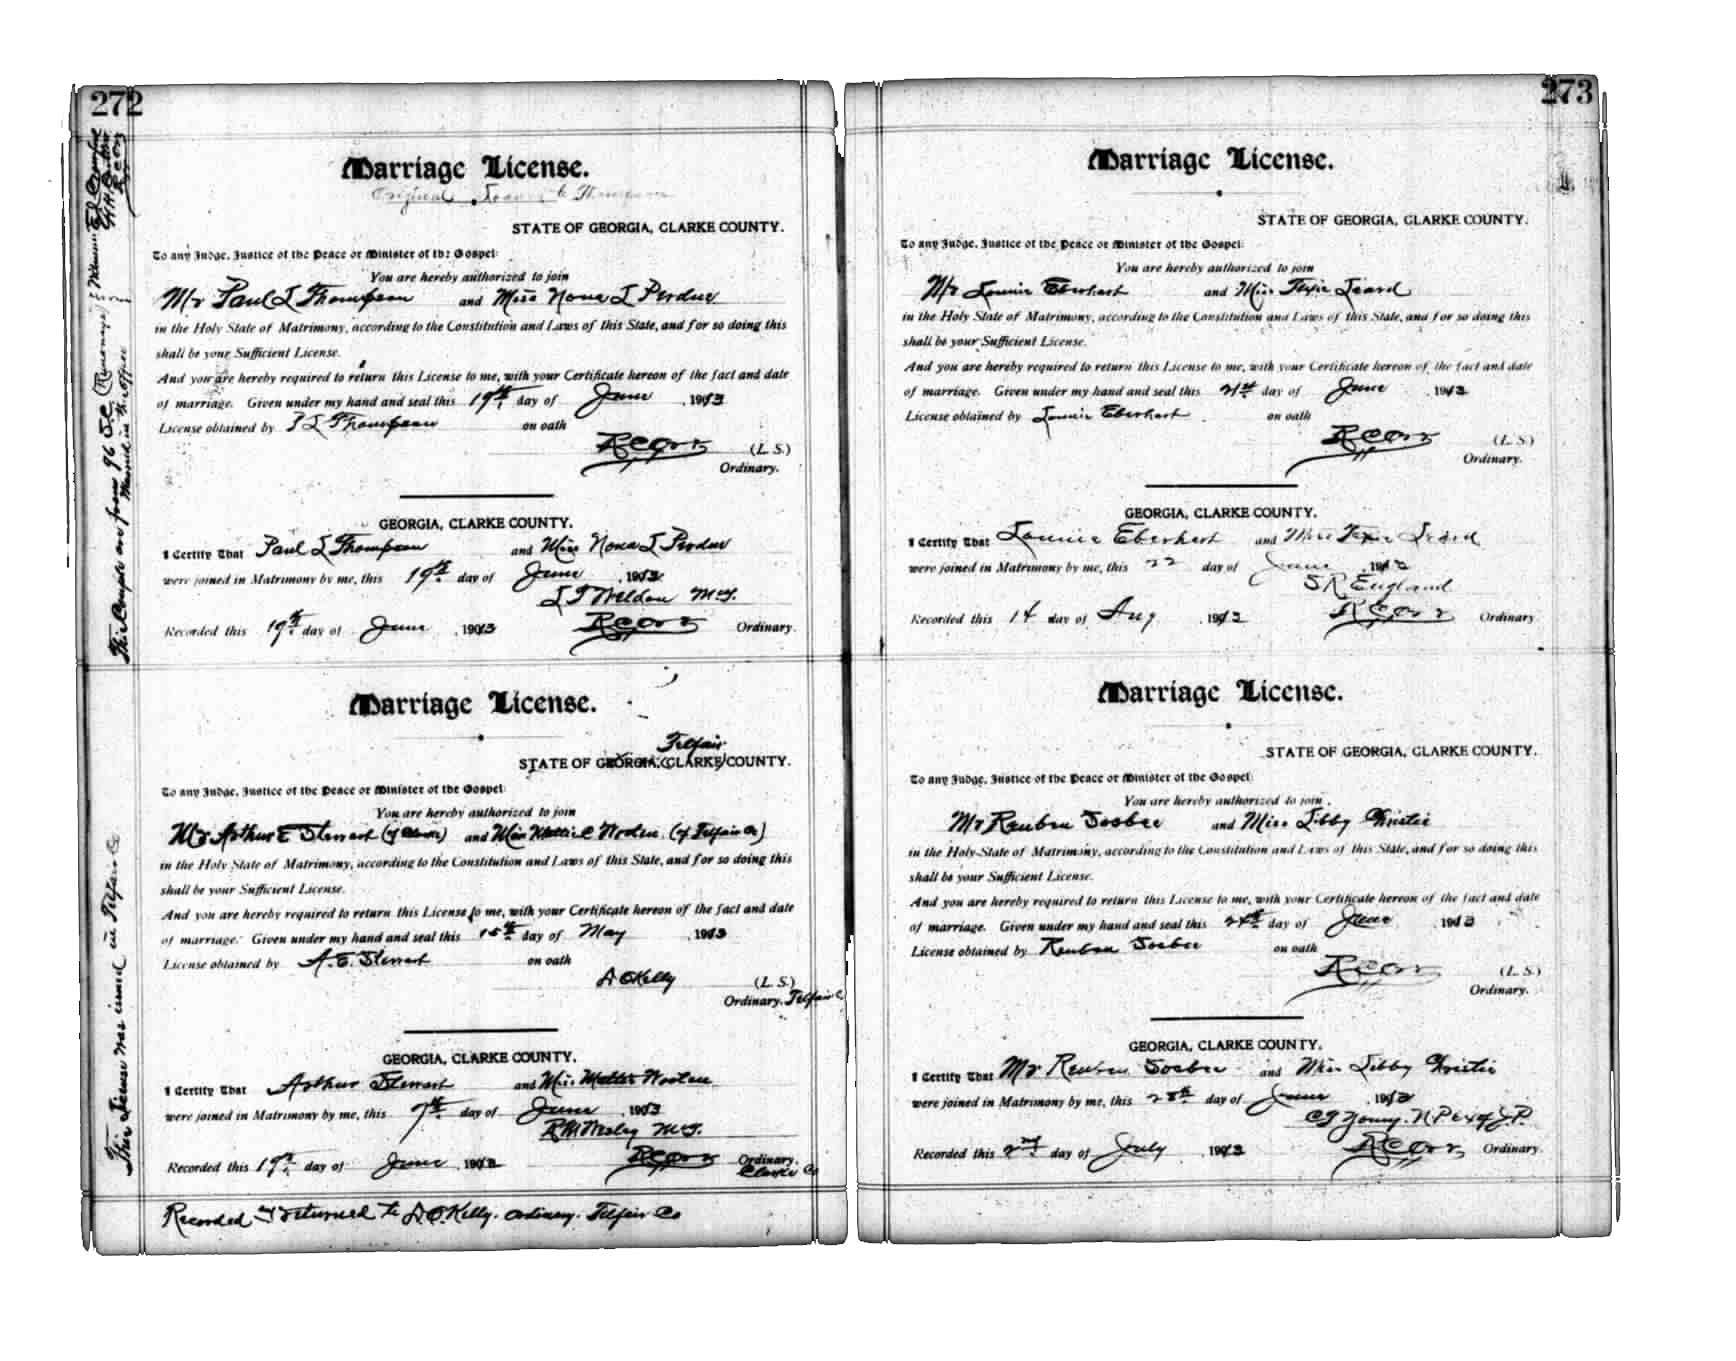 272
Marriage License.
Original
STATE OF GEORGIA, CLARKE COUNTY.
To any Judge, Justice of the Peace or Minister of the Gospel:
You are hereby authorized to join
Mr Paul L Thompson and Miss Nona L Perdue
in the Holy State of Matrimony, according to the Constitution and Laws of this State, and for so doing this
shall be your Sufficient License.
And you are hereby required to return this License to me, with your Certificate hereon of the fact and date
of marriage. Given under my hand and seal this 19th day of June, 1913
License obtained by P L Thompson on oath
R C Orr (L. S.)
Ordinary.
GEORGIA, CLARKE COUNTY.
I Certify That Paul L Thompson and Miss Nona L Perdue
were joined in Matrimony by me, this 19th day of June, 1913
L J Weldon M.G.
Recorded this 19th day of June, 1913 R C Orr Ordinary.
This Couple on from 96 S.C.
Married in the office
Marriage License.
Telfair
STATE OF GEORGIA, (CLARKE) COUNTY.
To any Judge, Justice of the Peace or Minister of the Gospel:
You are hereby authorized to join
Mr Arthur E Stewart (of Clarke) and Miss Mattie C (of Telfair Co)
in the Holy State of Matrimony, according to the Constitution and Laws of this State, and for so doing this
shall be your Sufficient License.
And you are hereby required to return this License to me, with your Certificate hereon of the fact and date
of marriage. Given under my hand and seal this 15th day of May, 1913
License obtained by A. E. Stewart on oath
A O Kelly (L. S.)
Ordinary. Telfair C
GEORGIA, CLARKE COUNTY.
I Certify That Arthur Stewart and Miss
were joined in Matrimony by me, this 7th day of June, 1913
R M Wesley M.G.
Recorded this 19th day of June, 1913 R C Orr Ordinary.
Clarke Co
Recorded & returned to A O. Kelly. Ordinary. Telfair Co
This License was issued in Telfair Co
273
Marriage License.
STATE OF GEORGIA, CLARKE COUNTY.
To any Judge, Justice of the Peace or Minister of the Gospel:
You are hereby authorized to join
Mr Lonnie Eberhart and Miss Texie
in the Holy State of Matrimony, according to the Constitution and Laws of this State, and for so doing this
shall be your Sufficient License.
And you are hereby required to return this License to me, with your Certificate hereon of the fact and date
of marriage. Given under my hand and seal this 21st day of June, 1913
License obtained by Lonnie Eberhart on oath
R C Orr (L. S.)
Ordinary.
GEORGIA, CLARKE COUNTY.
I Certify That Lonnie Eberhart and Miss Texie
were joined in Matrimony by me, this 22 day of June, 1913
S R England
Recorded this 14 day of Aug, 1913 R C Orr Ordinary
Marriage License.
STATE OF GEORGIA, CLARKE COUNTY.
To any Judge, Justice of the Peace or Minister of the Gospel:
You are hereby authorized to join
Mr Reuben Sosbee and Miss Libby Christie
in the Holy State of Matrimony, according to the Constitution and Laws of this State, and for so doing this
shall be your Sufficient License.
And you are hereby required to return this License to me, with your Certificate hereon of the fact and date
of marriage. Given under my hand and seal this 28th day of June 1913
License obtained by Reuben Sosbee on oath
R C Orr (L. S.)
Ordinary.
GEORGIA, CLARKE COUNTY.
I Certify That Mr Reuben Sosbee and Miss Libby Christie
were joined in Matrimony by me, this 28th day of June, 1913
C G Young. N.P. & Ex of J.P.
Recorded this 2nd day of July, 1913 R C Orr Ordinary